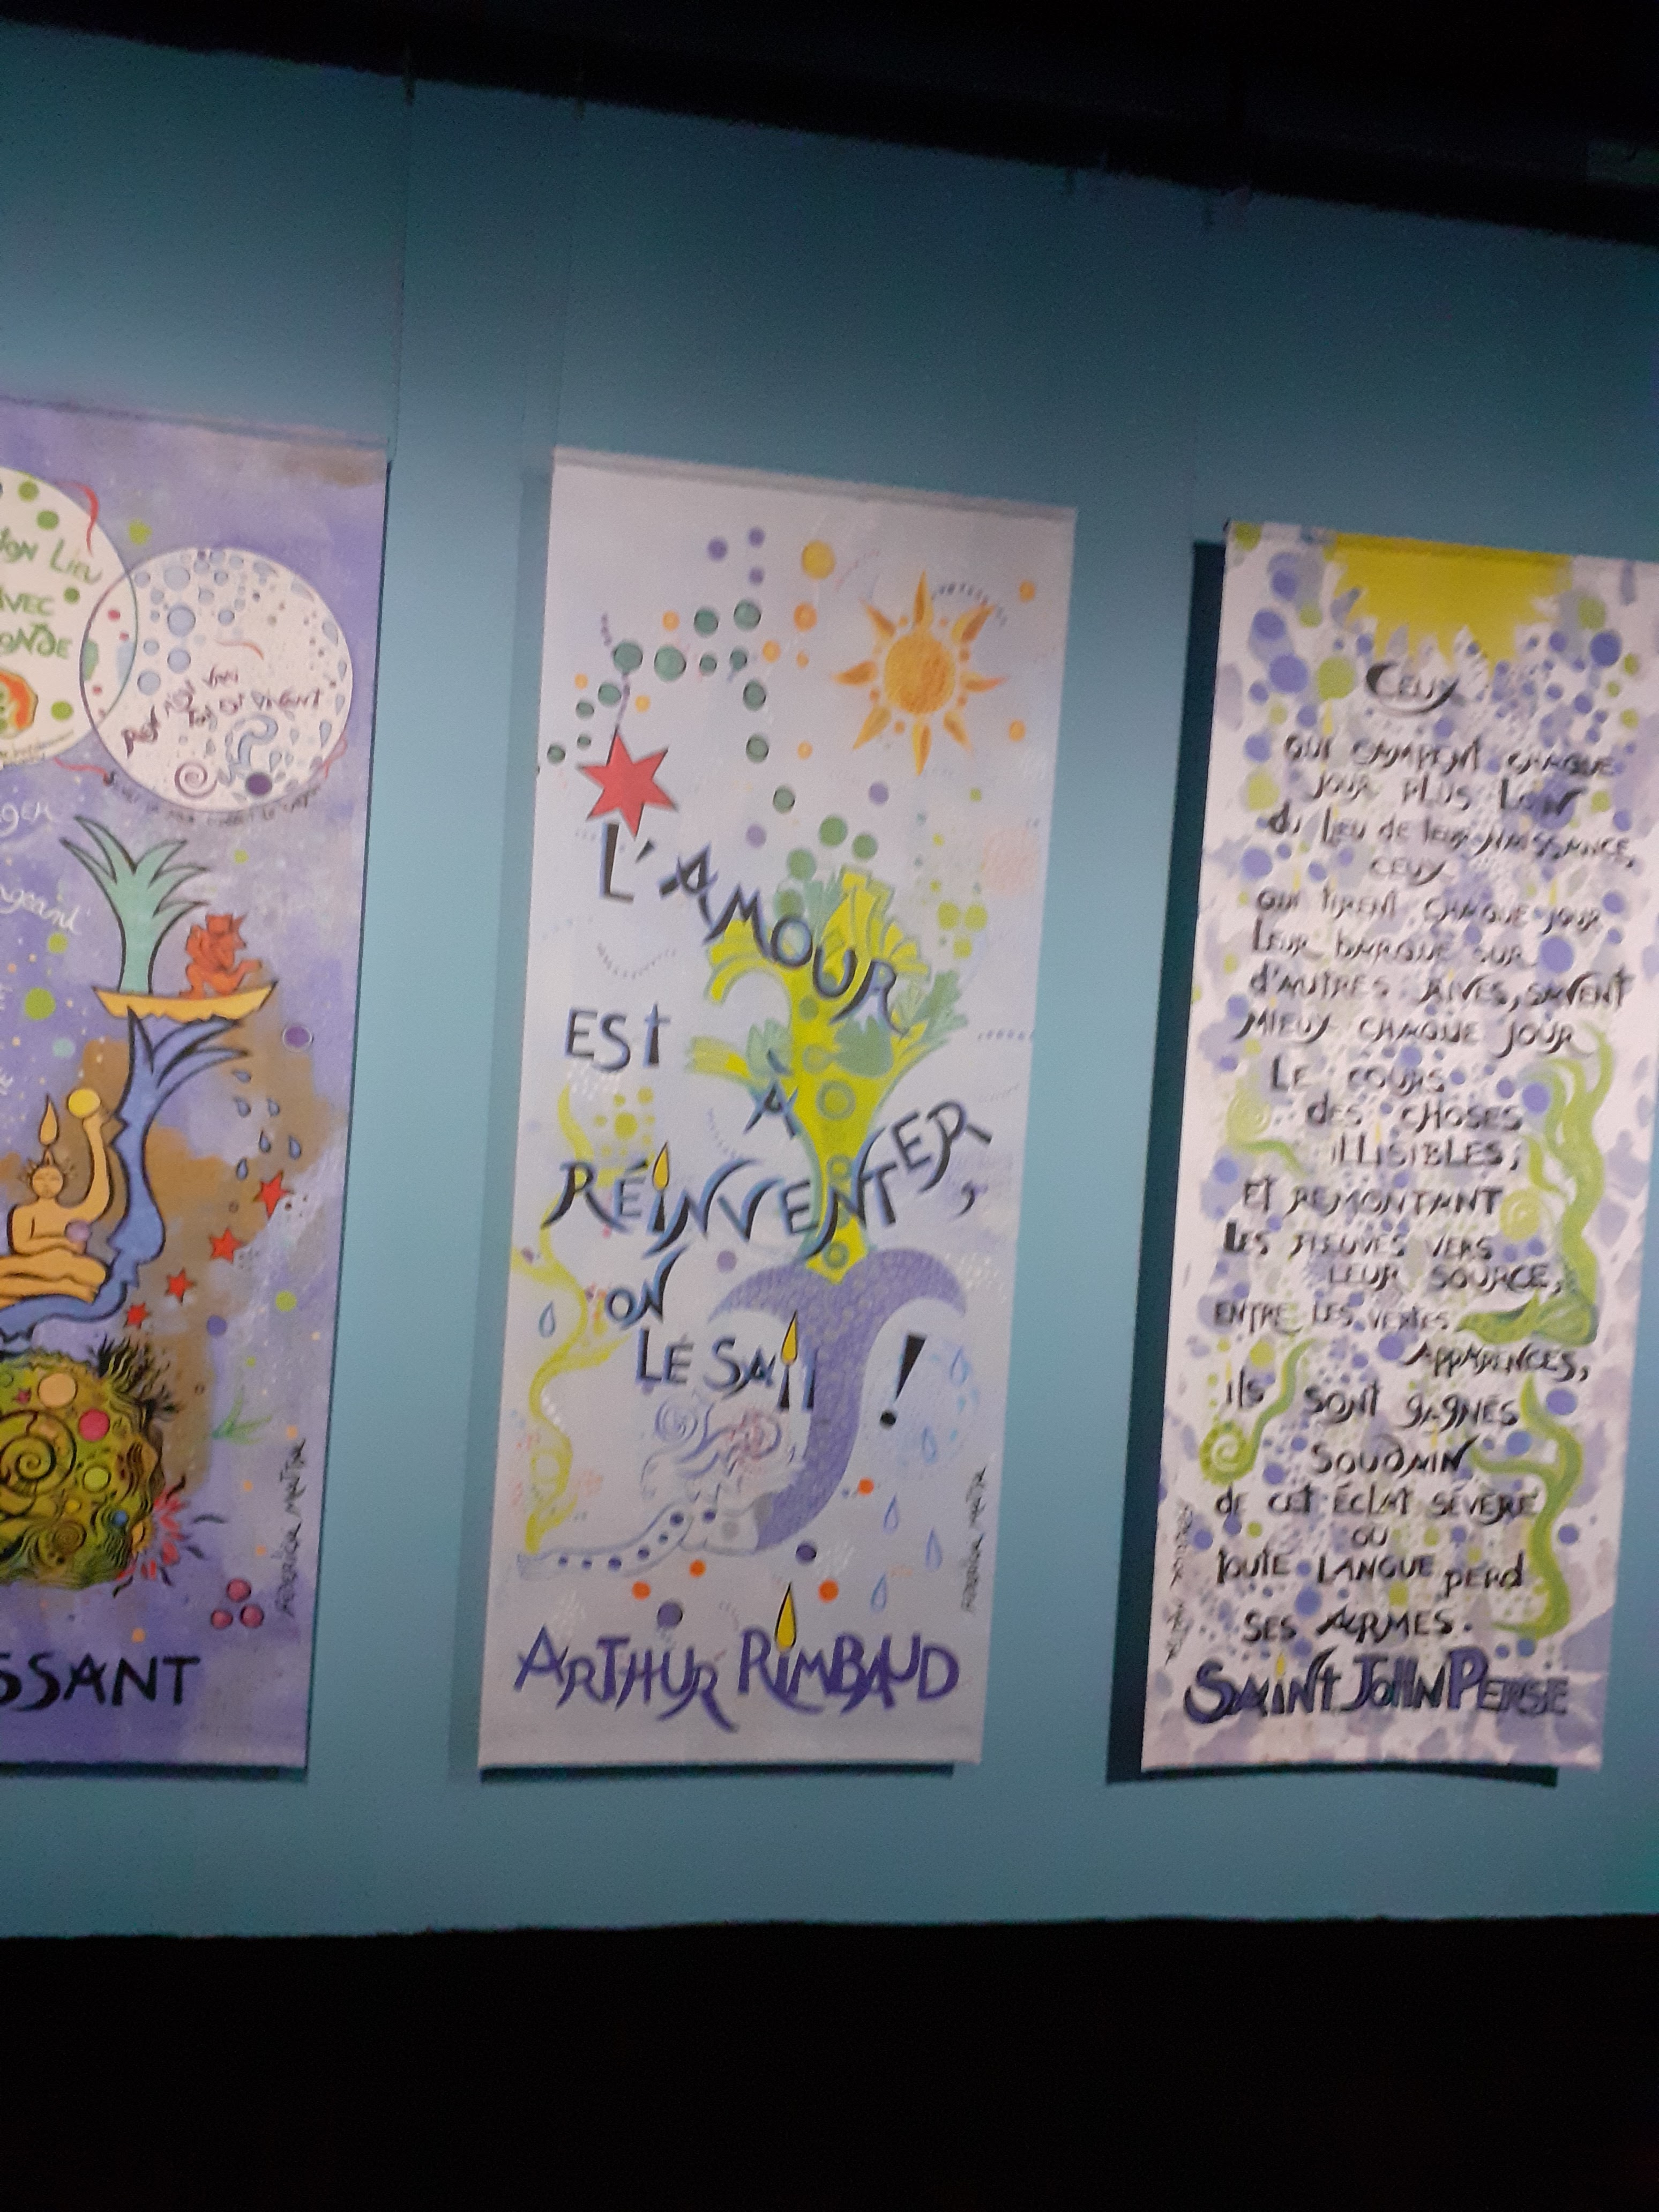 ON LIEU
AVEC
ONDE
VRAI
EST VIVANT
ngeant
SSANT
FREDERICA MATTA
L'AMOUR
EST
À
RÉINVENTER,
ON
LE SAIT !
FREDERICA MATTA
ARTHUR RIMBAUD
CEUX
QUI CAMPENT CHAQUE
JOUR PLUS LOIN
DU LIEU de leur NAISSANCE,
CEUX
QUI TIRENT CHAQUE JOUR
LEUR BARQUE SUR
d'AUTRES RIVES, SAVENT
MIEUX CHAQUE JOUR
LE COURS
des CHOSES
ILLISIBLES;
ET REMONTANT
LES FLEUVES VERS
LEUR SOURCE,
ENTRE LES VERTES
APPARENCES,
ILS SONT GAGNÉS
SOUDAIN
DE CET ÉCLAT SÉVÈRE
OU
TOUTE LANGUE perd
SES ARMES.
FREDERICA MATTA
SAINT JOHN PERSE